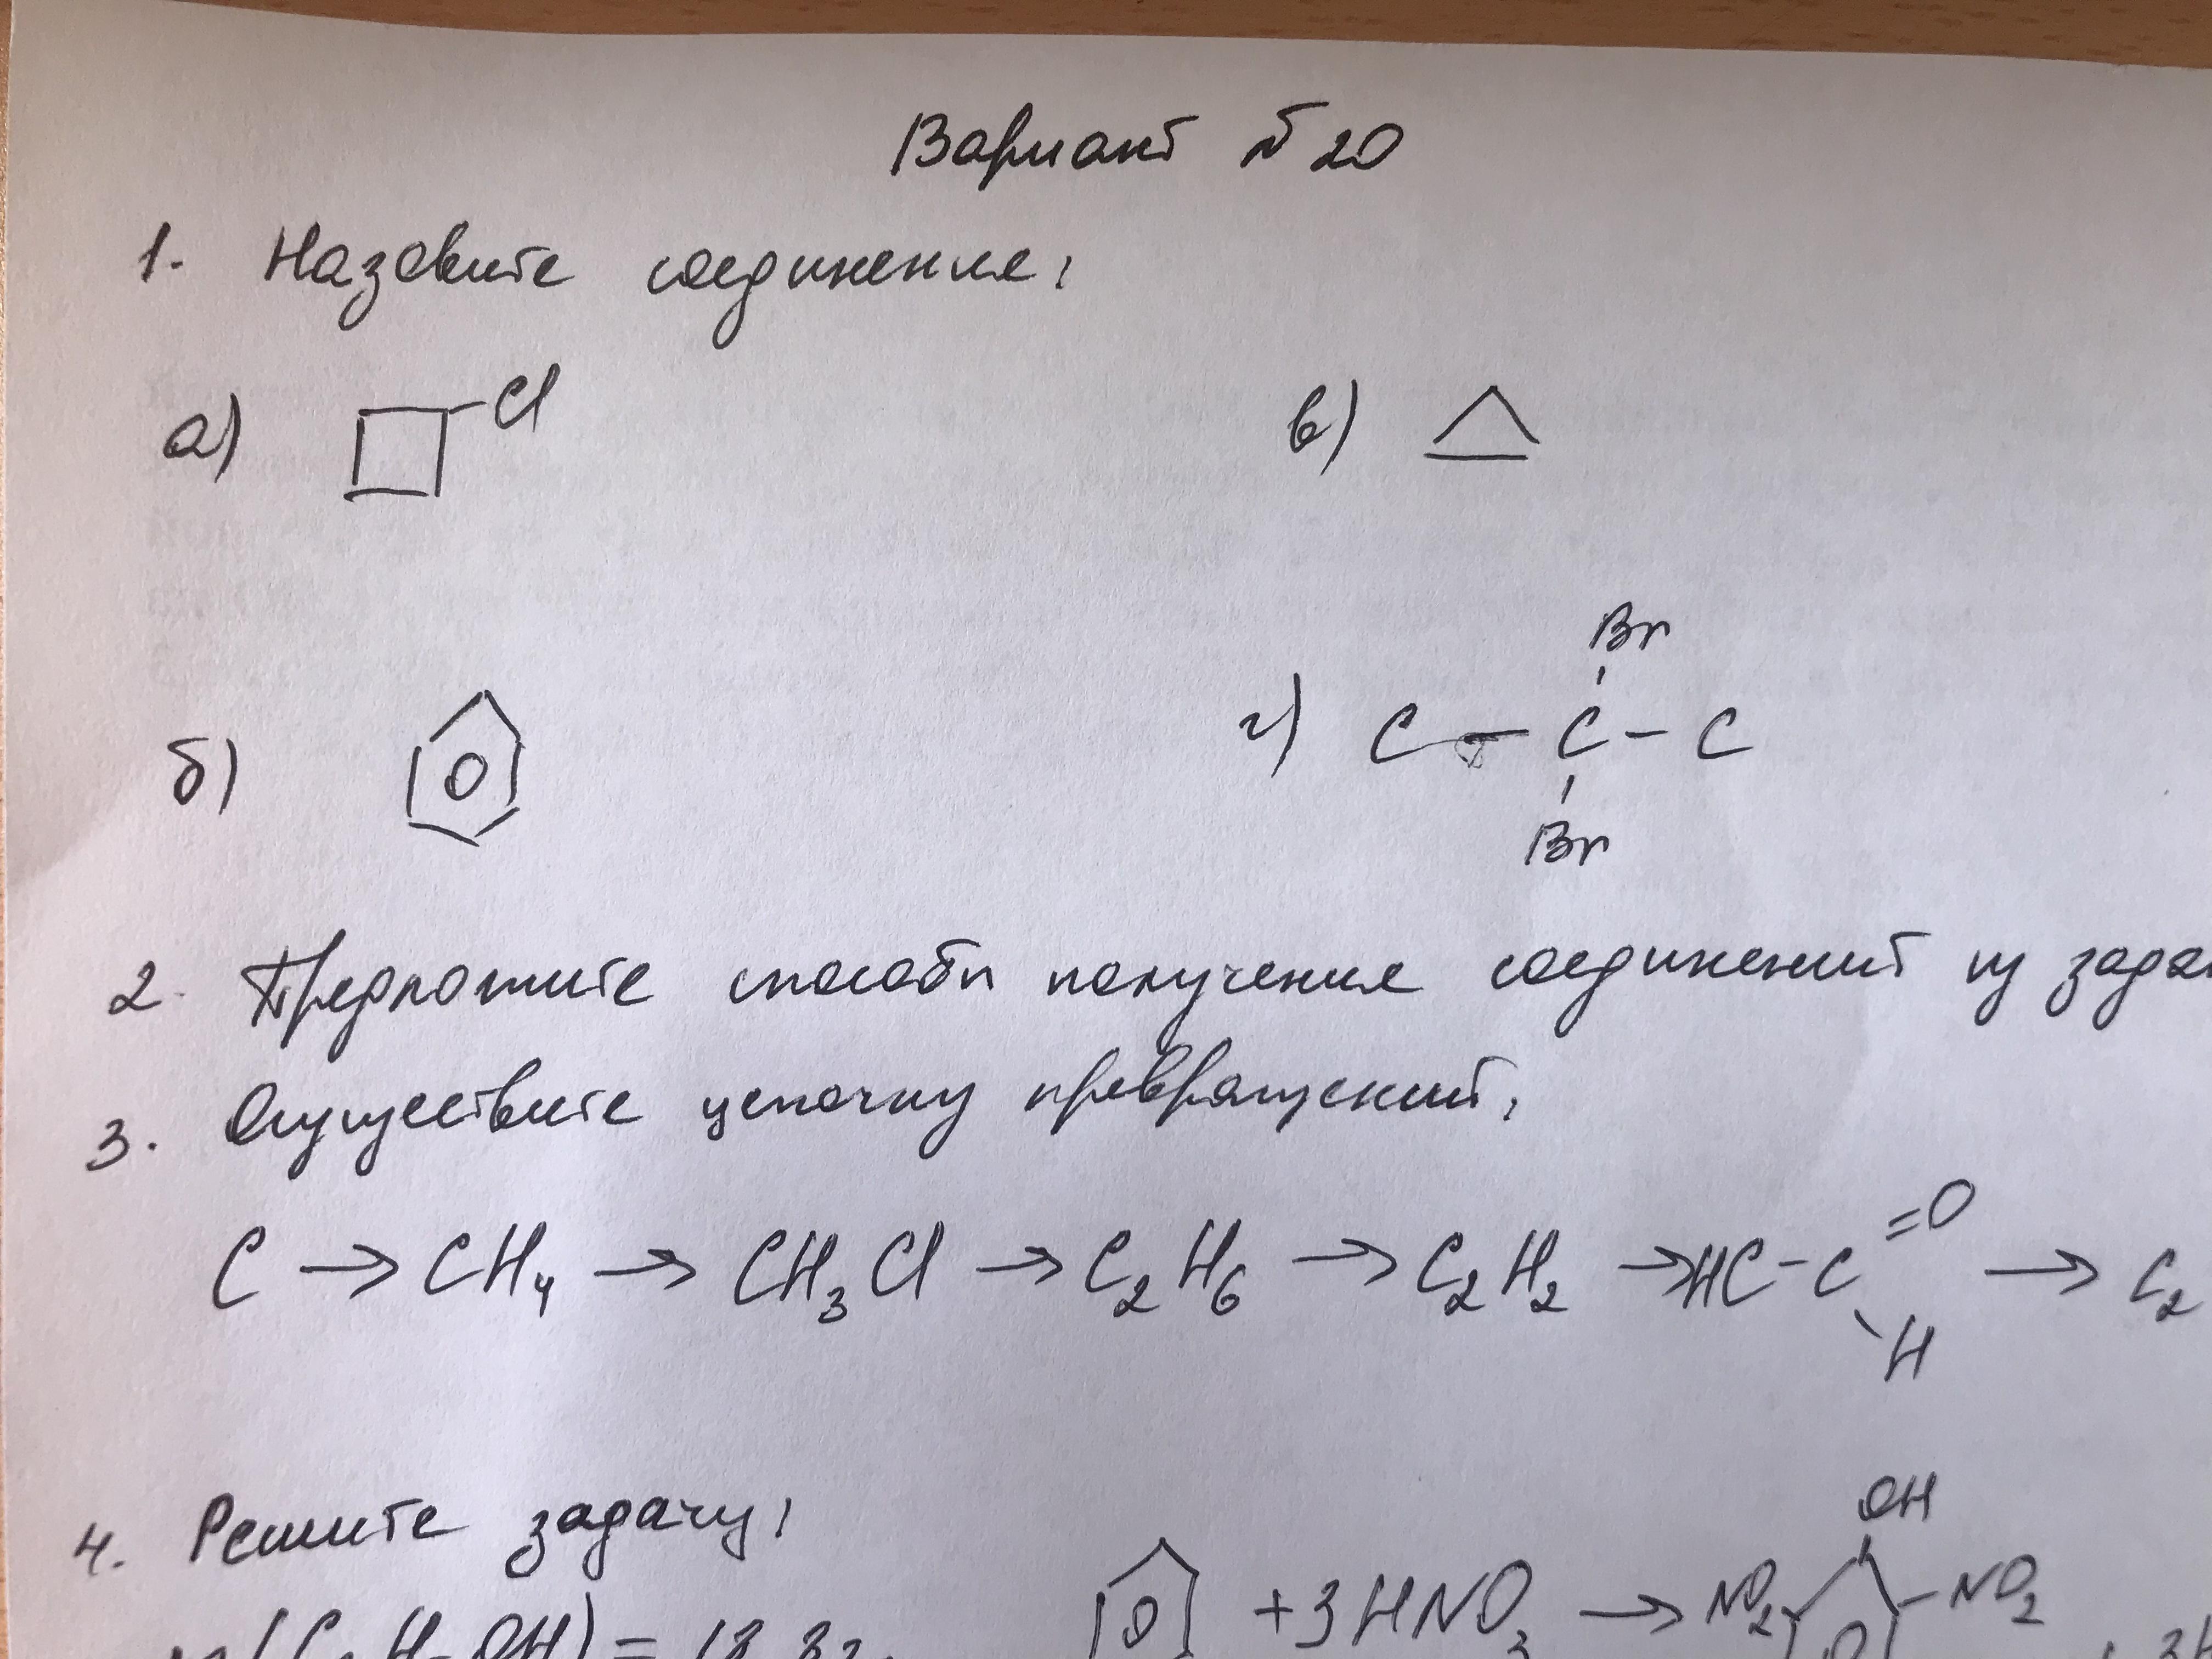 Вариант №20
1. Назовите соединения:
а) Cl
в)
б)
г) C - C - C
Br
Br
2. Предложите способы получения соединений из
3. Осуществите цепочку превращений:
C → CH₄ → CH₃Cl → C₂H₆ → C₂H₂ → HC-C =O H → C₂
4. Решите задачу:
+3HNO₃ → NO₂ OH NO₂